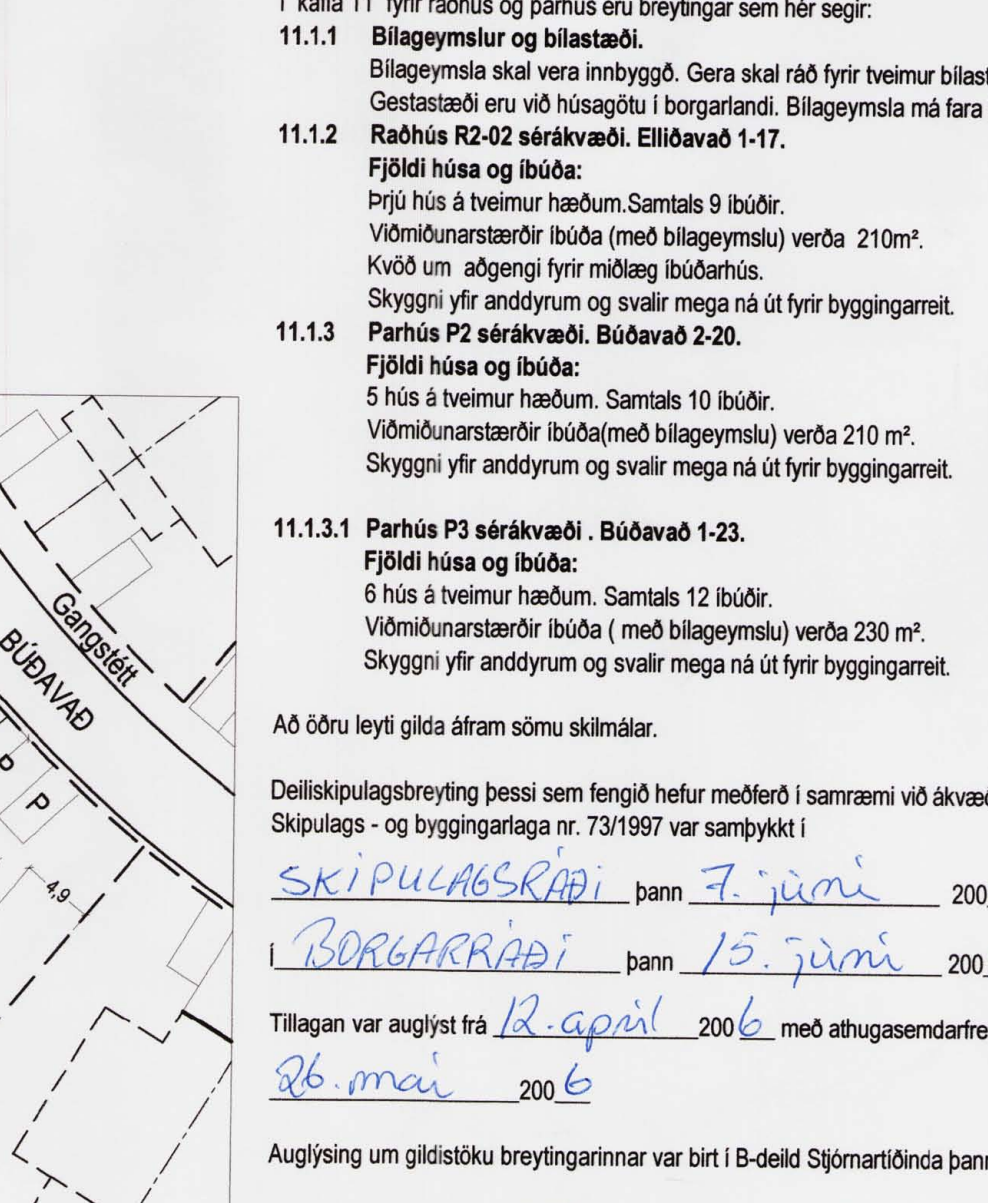 Í kafla 11 fyrir raðhús og parhús eru breytingar sem hér segir:
11.1.1 Bílageymslur og bílastæði.
Bílageymsla skal vera innbyggð. Gera skal ráð fyrir tveimur bílast
Gestastæði eru við húsagötu í borgarlandi. Bílageymsla má fara
11.1.2 Raðhús R2-02 sérákvæði. Elliðavað 1-17.
Fjöldi húsa og íbúða:
Þrjú hús á tveimur hæðum.Samtals 9 íbúðir.
Viðmiðunarstærðir íbúða (með bílageymslu) verða 210m².
Kvöð um aðgengi fyrir miðlæg íbúðarhús.
Skyggni yfir anddyrum og svalir mega ná út fyrir byggingarreit.
11.1.3 Parhús P2 sérákvæði. Búðavað 2-20.
Fjöldi húsa og íbúða:
5 hús á tveimur hæðum. Samtals 10 íbúðir.
Viðmiðunarstærðir íbúða(með bílageymslu) verða 210 m².
Skyggni yfir anddyrum og svalir mega ná út fyrir byggingarreit.
11.1.3.1 Parhús P3 sérákvæði . Búðavað 1-23.
Fjöldi húsa og íbúða:
6 hús á tveimur hæðum. Samtals 12 íbúðir.
Viðmiðunarstærðir íbúða ( með bílageymslu) verða 230 m².
Skyggni yfir anddyrum og svalir mega ná út fyrir byggingarreit.
Að öðru leyti gilda áfram sömu skilmálar.
Deiliskipulagsbreyting þessi sem fengið hefur meðferð í samræmi við ákvæð
Skipulags - og byggingarlaga nr. 73/1997 var samþykkt í
SKIPULAGSRÁÐI þann 7. júní 200
í BORGARRÁÐI þann 15. júní 200
Tillagan var auglýst frá 12. apríl 2006 með athugasemdarfre
26. maí 2006
Auglýsing um gildistöku breytingarinnar var birt í B-deild Stjórnartíðinda þann
Gangstétt
BÚÐAVAÐ
P
P
4,9